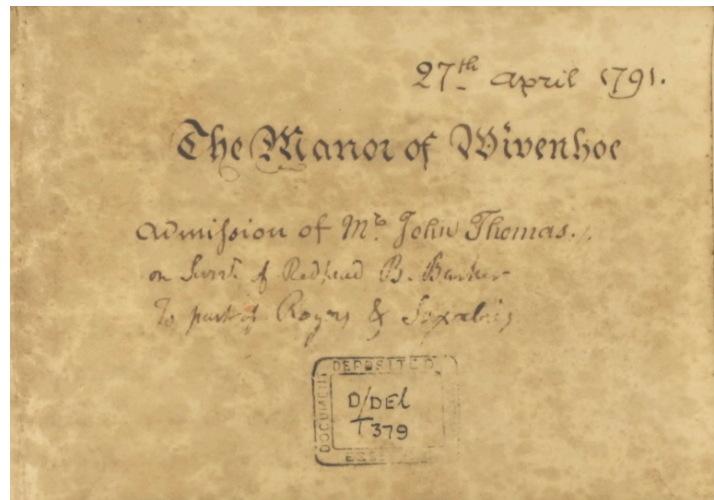 27th april 1791.
The Manor of Wivenhoe
admission of Mr. John Thomas.
on Surr. of Redhead B. Barker
To part of Rogers &
DEPOSITED
DOCUMENT
D/DEl
T379